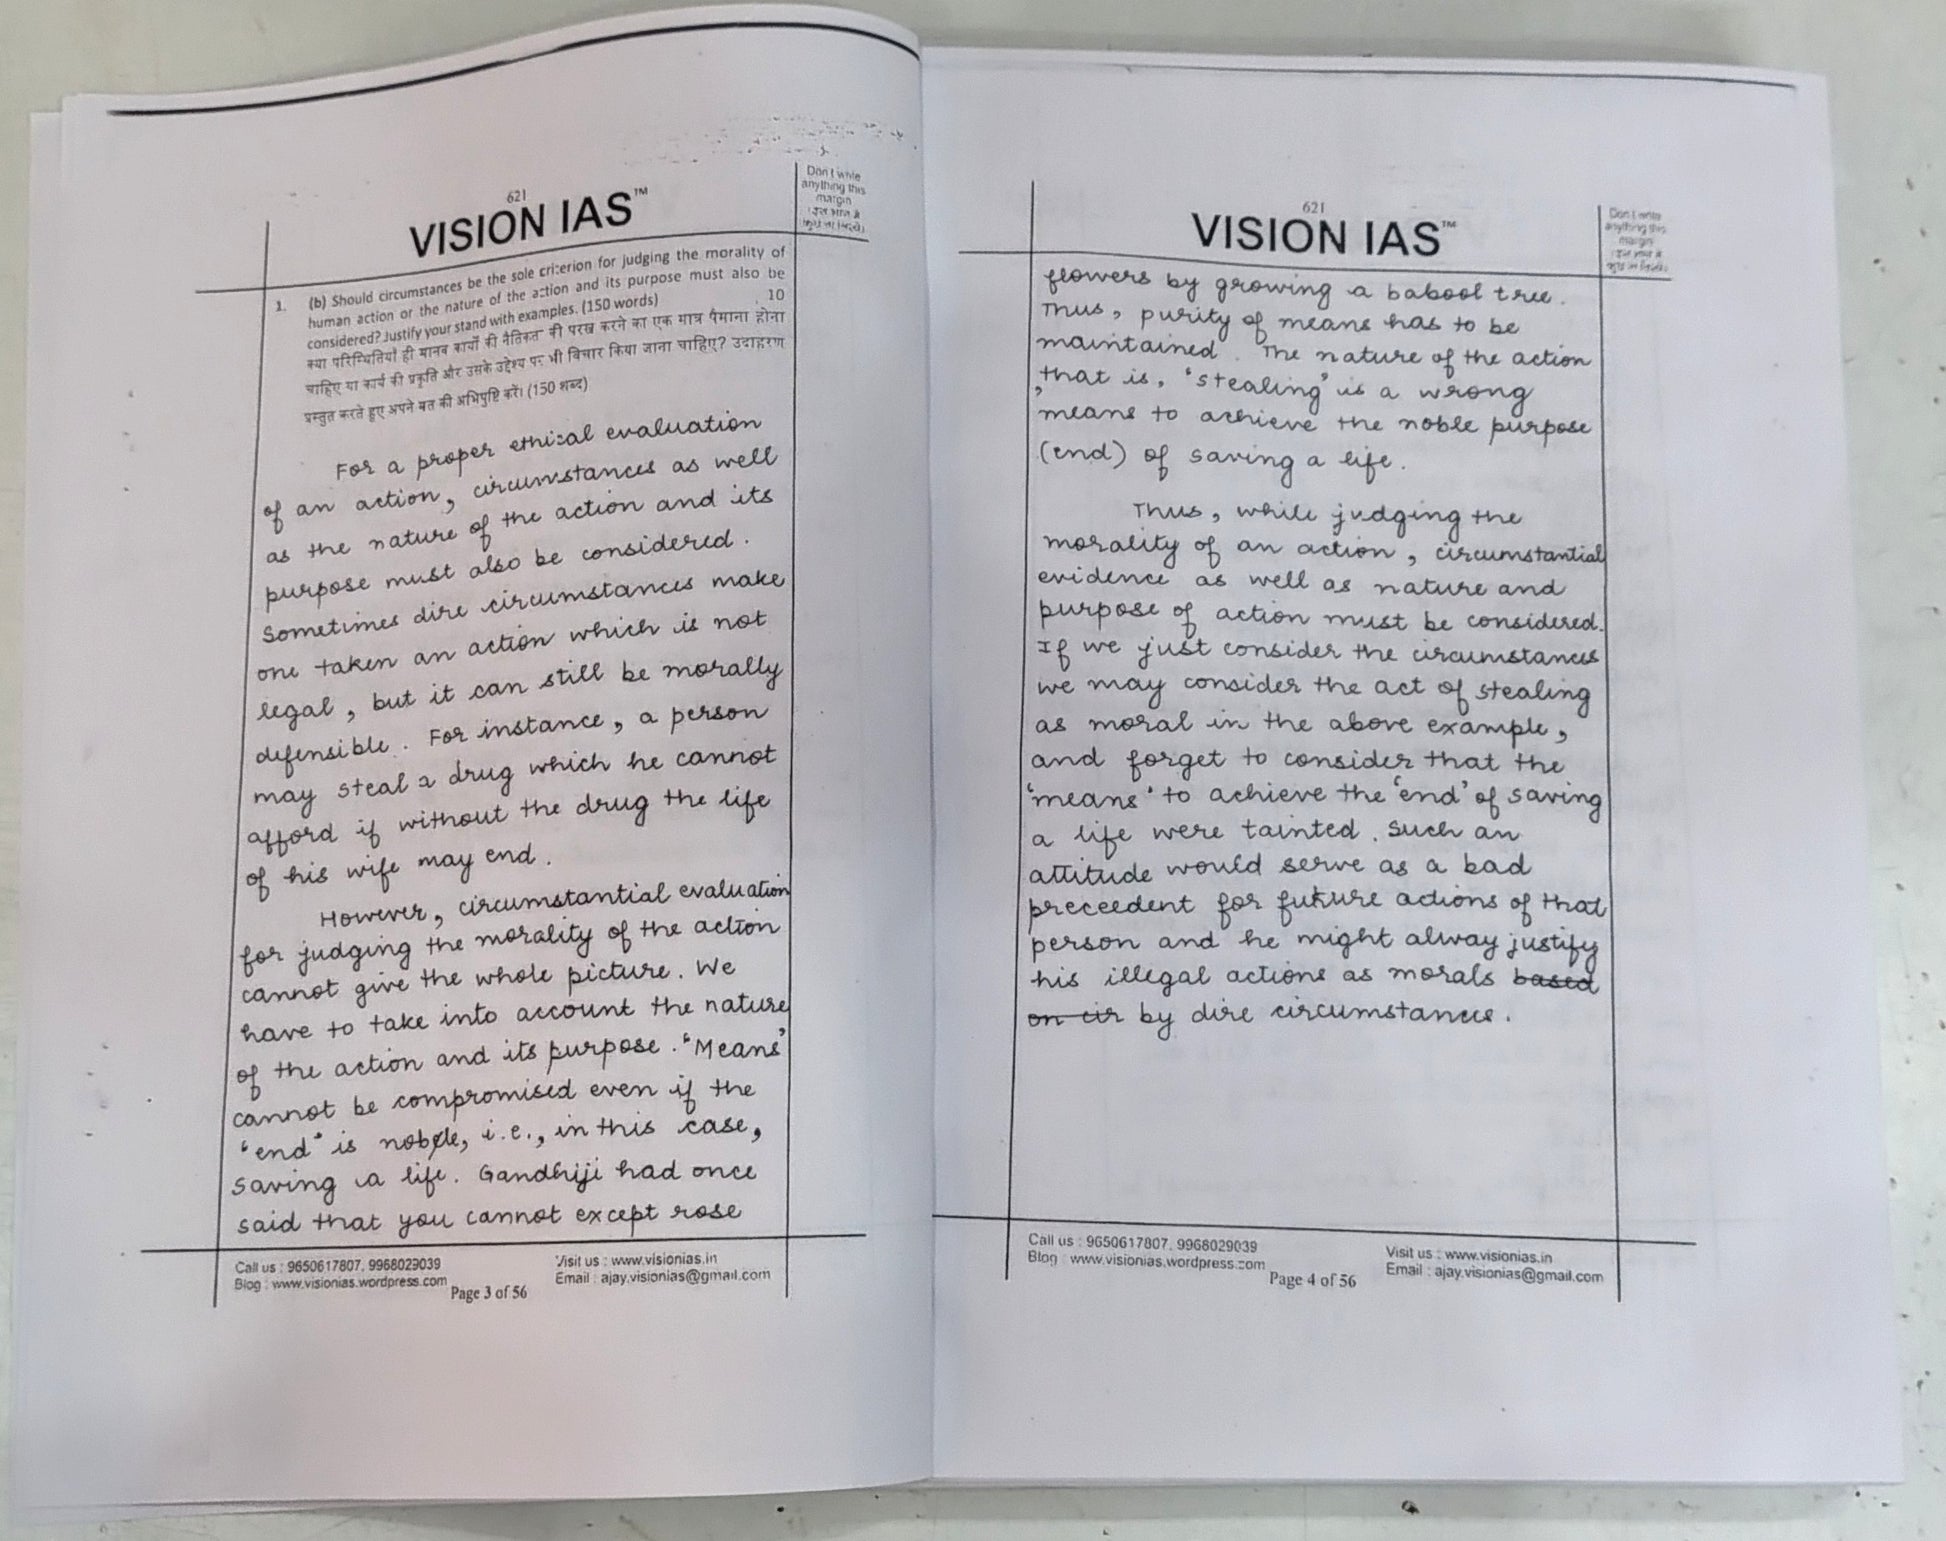 621
VISION IAS™
Don't write
anything this
margin
1. (b) Should circumstances be the sole criterion for judging the morality of
human action or the nature of the action and its purpose must also be
considered? Justify your stand with examples. (150 words) 10
क्या परिस्थितियाँ ही मानव कार्यों की नैतिकता की परख करने का एक मात्र पैमाना होना
चाहिए या कार्य की प्रकृति और उसके उद्देश्य पर भी विचार किया जाना चाहिए? उदाहरण
प्रस्तुत करते हुए अपने मत की अभिपुष्टि करें। (150 शब्द)
For a proper ethical evaluation
of an action, circumstances as well
as the nature of the action and its
purpose must also be considered.
Sometimes dire circumstances make
one taken an action which is not
legal, but it can still be morally
defensible. For instance, a person
may steal a drug which he cannot
afford if without the drug the life
of his wife may end.
However, circumstantial evaluation
for judging the morality of the action
cannot give the whole picture. We
have to take into account the nature
of the action and its purpose. 'Means'
cannot be compromised even if the
'end' is noble, i.e., in this case,
saving a life. Gandhiji had once
said that you cannot except rose
Call us : 9650617807, 9968029039 Visit us : www.visionias.in
Blog : www.visionias.wordpress.com Email : ajay.visionias@gmail.com
Page 3 of 56
621
VISION IAS™
Don't write
anything this
margin
flowers by growing a babool tree.
Thus, purity of means has to be
maintained. The nature of the action
, that is, 'stealing' is a wrong
means to achieve the noble purpose
(end) of saving a life.
Thus, while judging the
morality of an action, circumstantial
evidence as well as nature and
purpose of action must be considered.
If we just consider the circumstances
we may consider the act of stealing
as moral in the above example,
and forget to consider that the
'means' to achieve the 'end' of saving
a life were tainted. Such an
attitude would serve as a bad
preceedent for future actions of that
person and he might alway justify
his illegal actions as morals based
on cir by dire circumstances.
Call us : 9650617807, 9968029039 Visit us : www.visionias.in
Blog : www.visionias.wordpress.com Email : ajay.visionias@gmail.com
Page 4 of 56